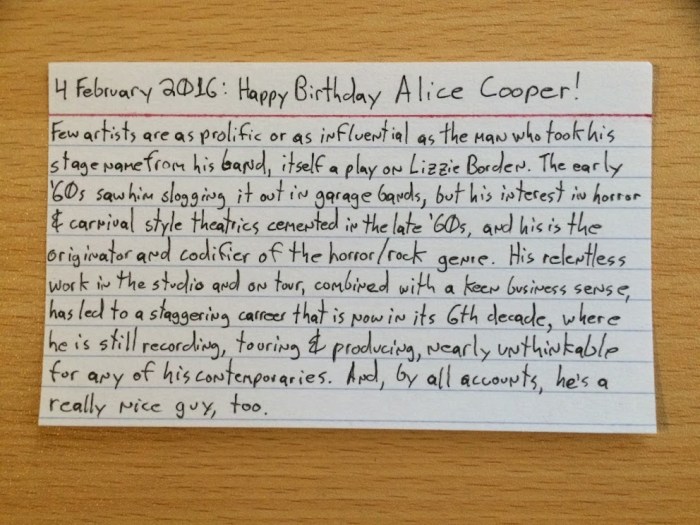 4 February 2016: Happy Birthday Alice Cooper!
Few artists are as prolific or as influential as the man who took his
stage name from his band, itself a play on Lizzie Borden. The early
'60s saw him slogging it out in garage bands, but his interest in horror
& carnival style theatrics cemented in the late '60s, and his is the
originator and codifier of the horror/rock genre. His relentless
work in the studio and on tour, combined with a keen business sense,
has led to a staggering carreer that is now in its 6th decade, where
he is still recording, touring & producing, nearly unthinkable
for any of his contemporaries. And, by all accounts, he's a
really nice guy, too.